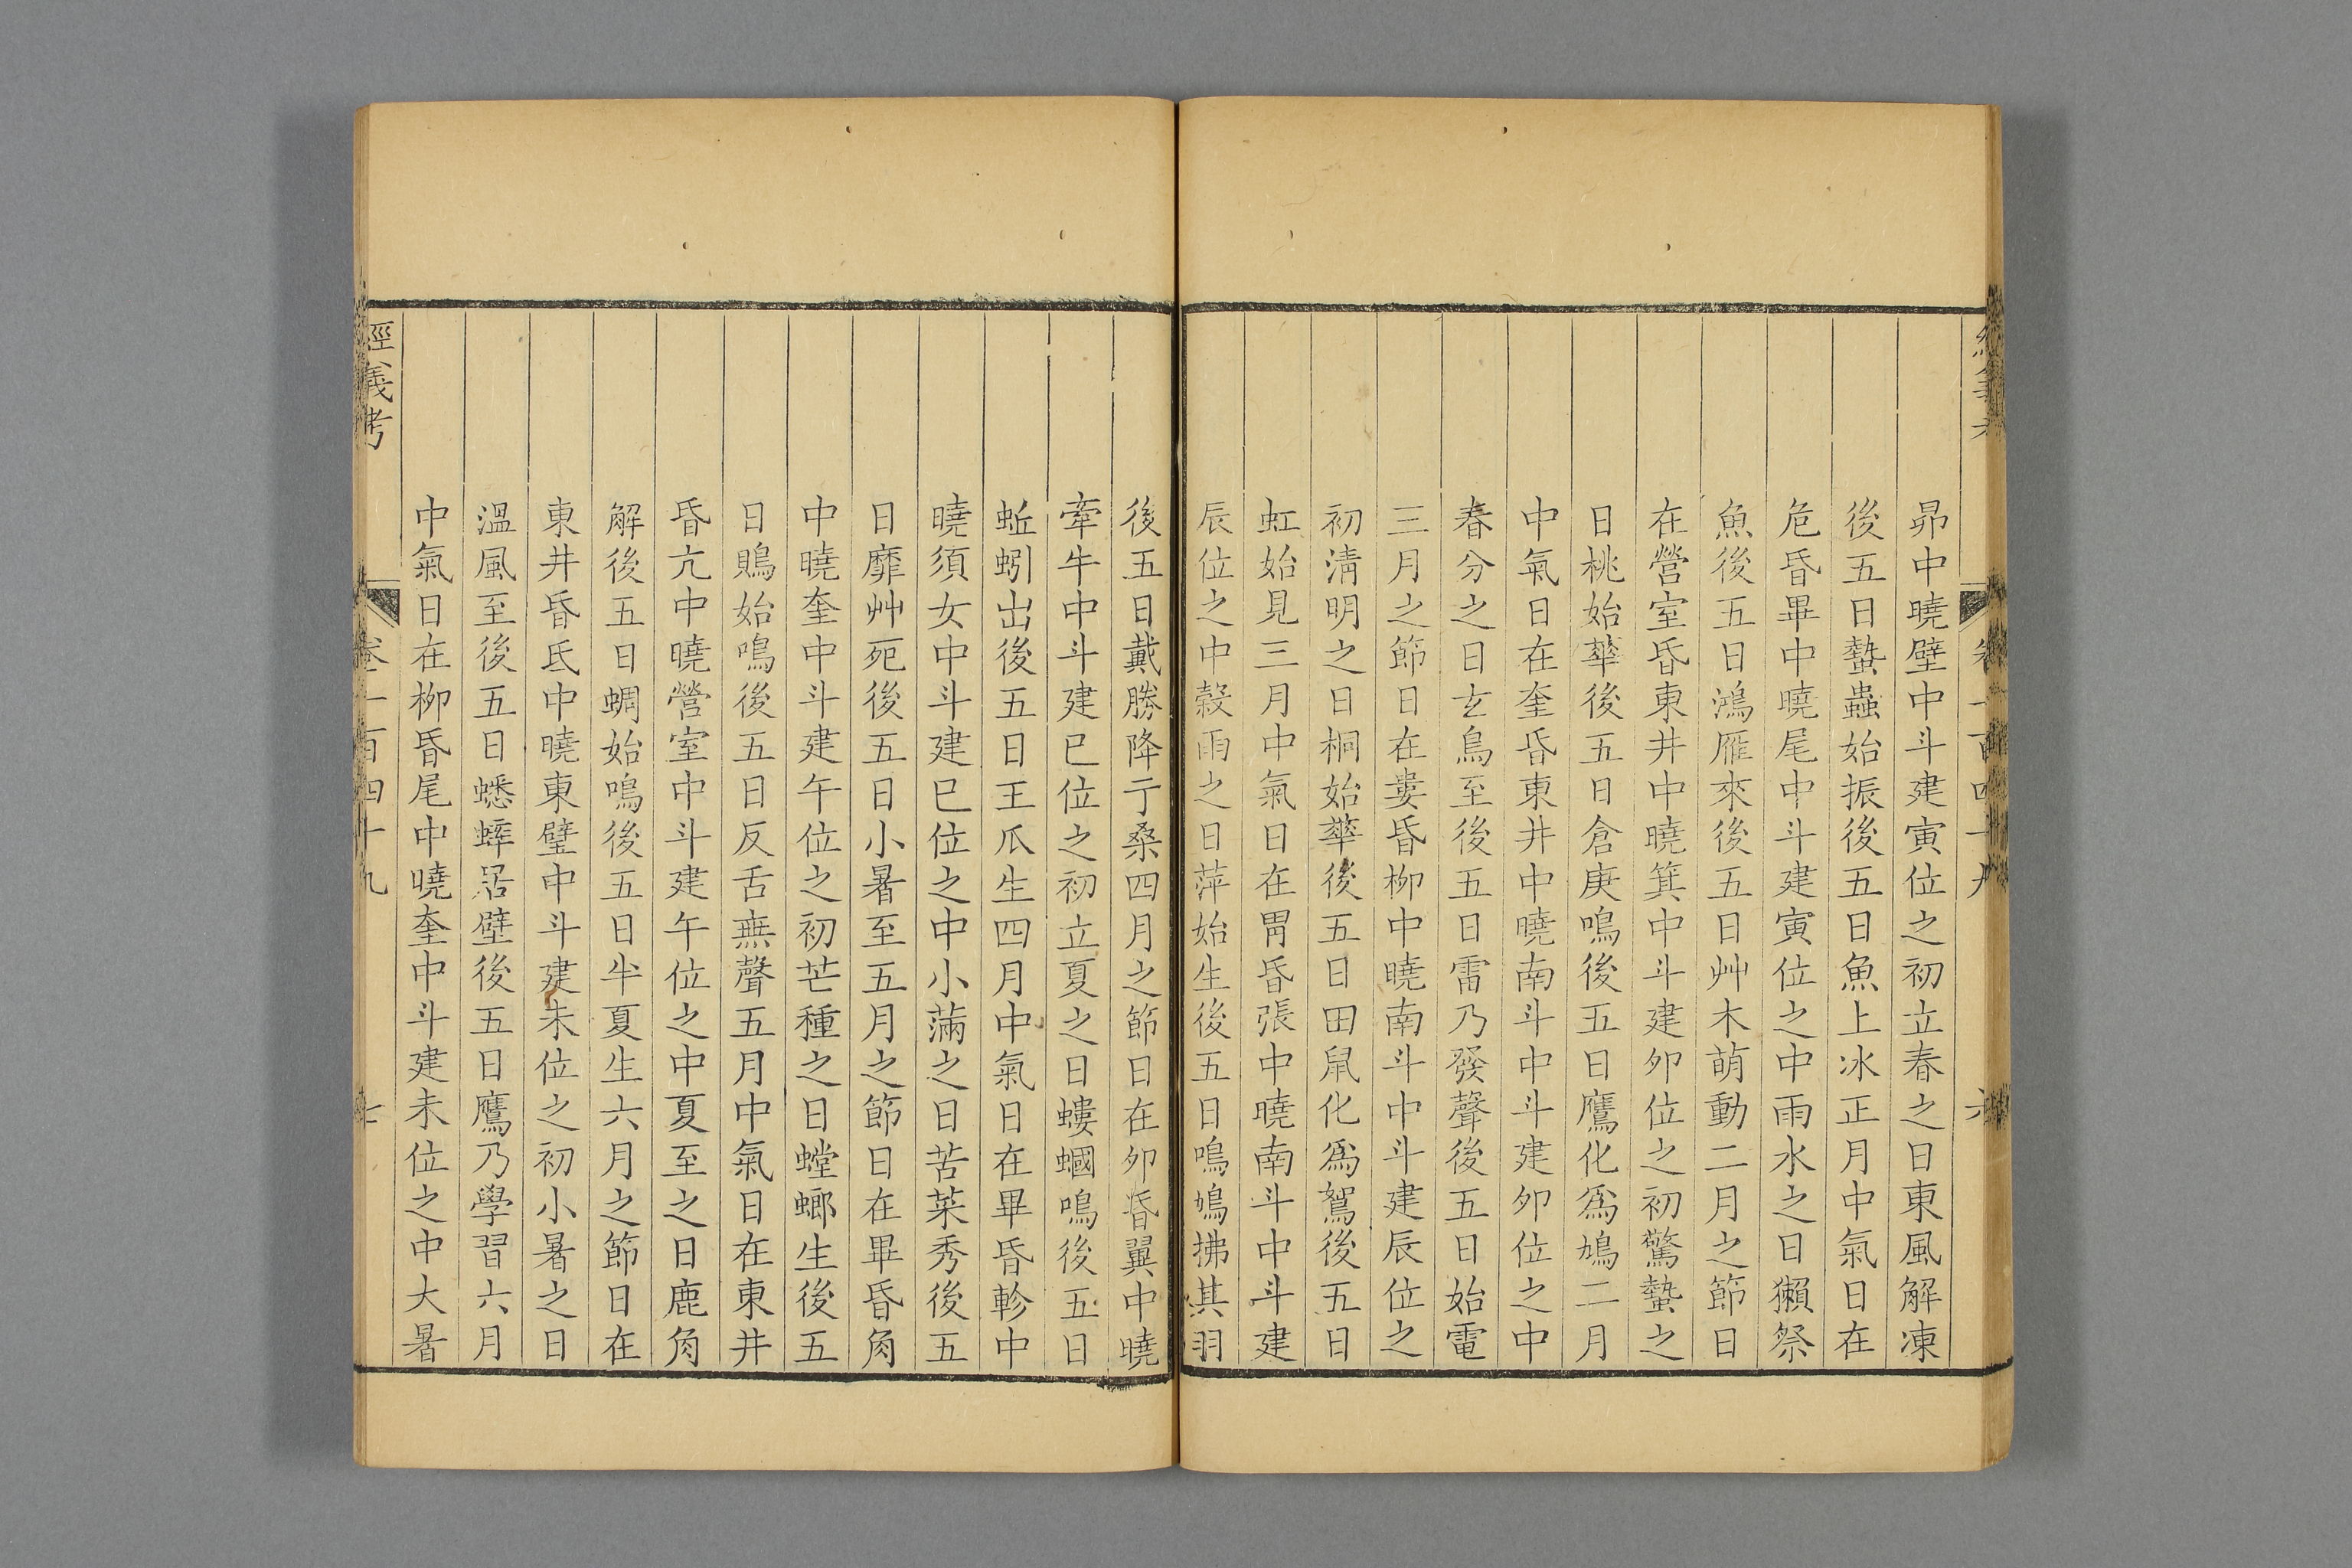 昴中曉壁中斗建寅位之初立春之日東風解凍
後五日蟄蟲始振後五日魚上冰正月中氣日在
危昏畢中曉尾中斗建寅位之中雨水之日獺祭
魚後五日鴻雁來後五日艸木萌動二月之節日
在營室昏東井中曉箕中斗建夘位之初驚蟄之
日桃始華後五日倉庚鳴後五日鷹化爲鳩二月
中氣日在奎昏東井中曉南斗中斗建夘位之中
春分之日玄鳥至後五日雷乃發聲後五日始電
三月之節日在婁昏柳中曉南斗中斗建辰位之
初淸明之日桐始華後五日田鼠化爲鴽後五日
虹始見三月中氣日在胃昏張中曉南斗中斗建
辰位之中榖雨之日萍始生後五日鳴鳩拂其羽
後五日戴勝降于桑四月之節日在夘昏翼中曉
牽牛中斗建巳位之初立夏之日螻蟈鳴後五日
蚯蚓出後五日王瓜生四月中氣日在畢昏軫中
曉須女中斗建巳位之中小滿之日苦菜秀後五
日靡艸死後五日小暑至五月之節日在畢昏角
中曉奎中斗建午位之初芒種之日螳螂生後五
日鵙始鳴後五日反舌無聲五月中氣日在東井
昏亢中曉營室中斗建午位之中夏至之日鹿角
解後五日蜩始鳴後五日半夏生六月之節日在
東井昏氐中曉東壁中斗建未位之初小暑之日
溫風至後五日蟋蟀居壁後五日鷹乃學習六月
中氣日在柳昏尾中曉奎中斗建未位之中大暑
經義考
卷一百四十九
七